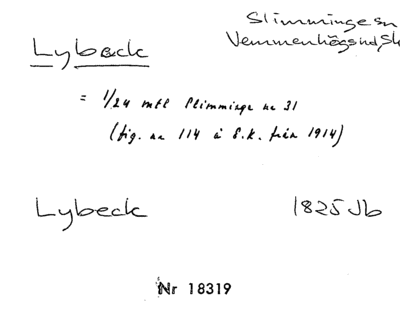 Slimminge sn
Vemmenhögs hd, Sk
Lybeck
= 1/24 mtl Slimminge nr 31
(fig. nr 114 å E.K. från 1914)
Lybeck 1825 Jb
Nr 18319